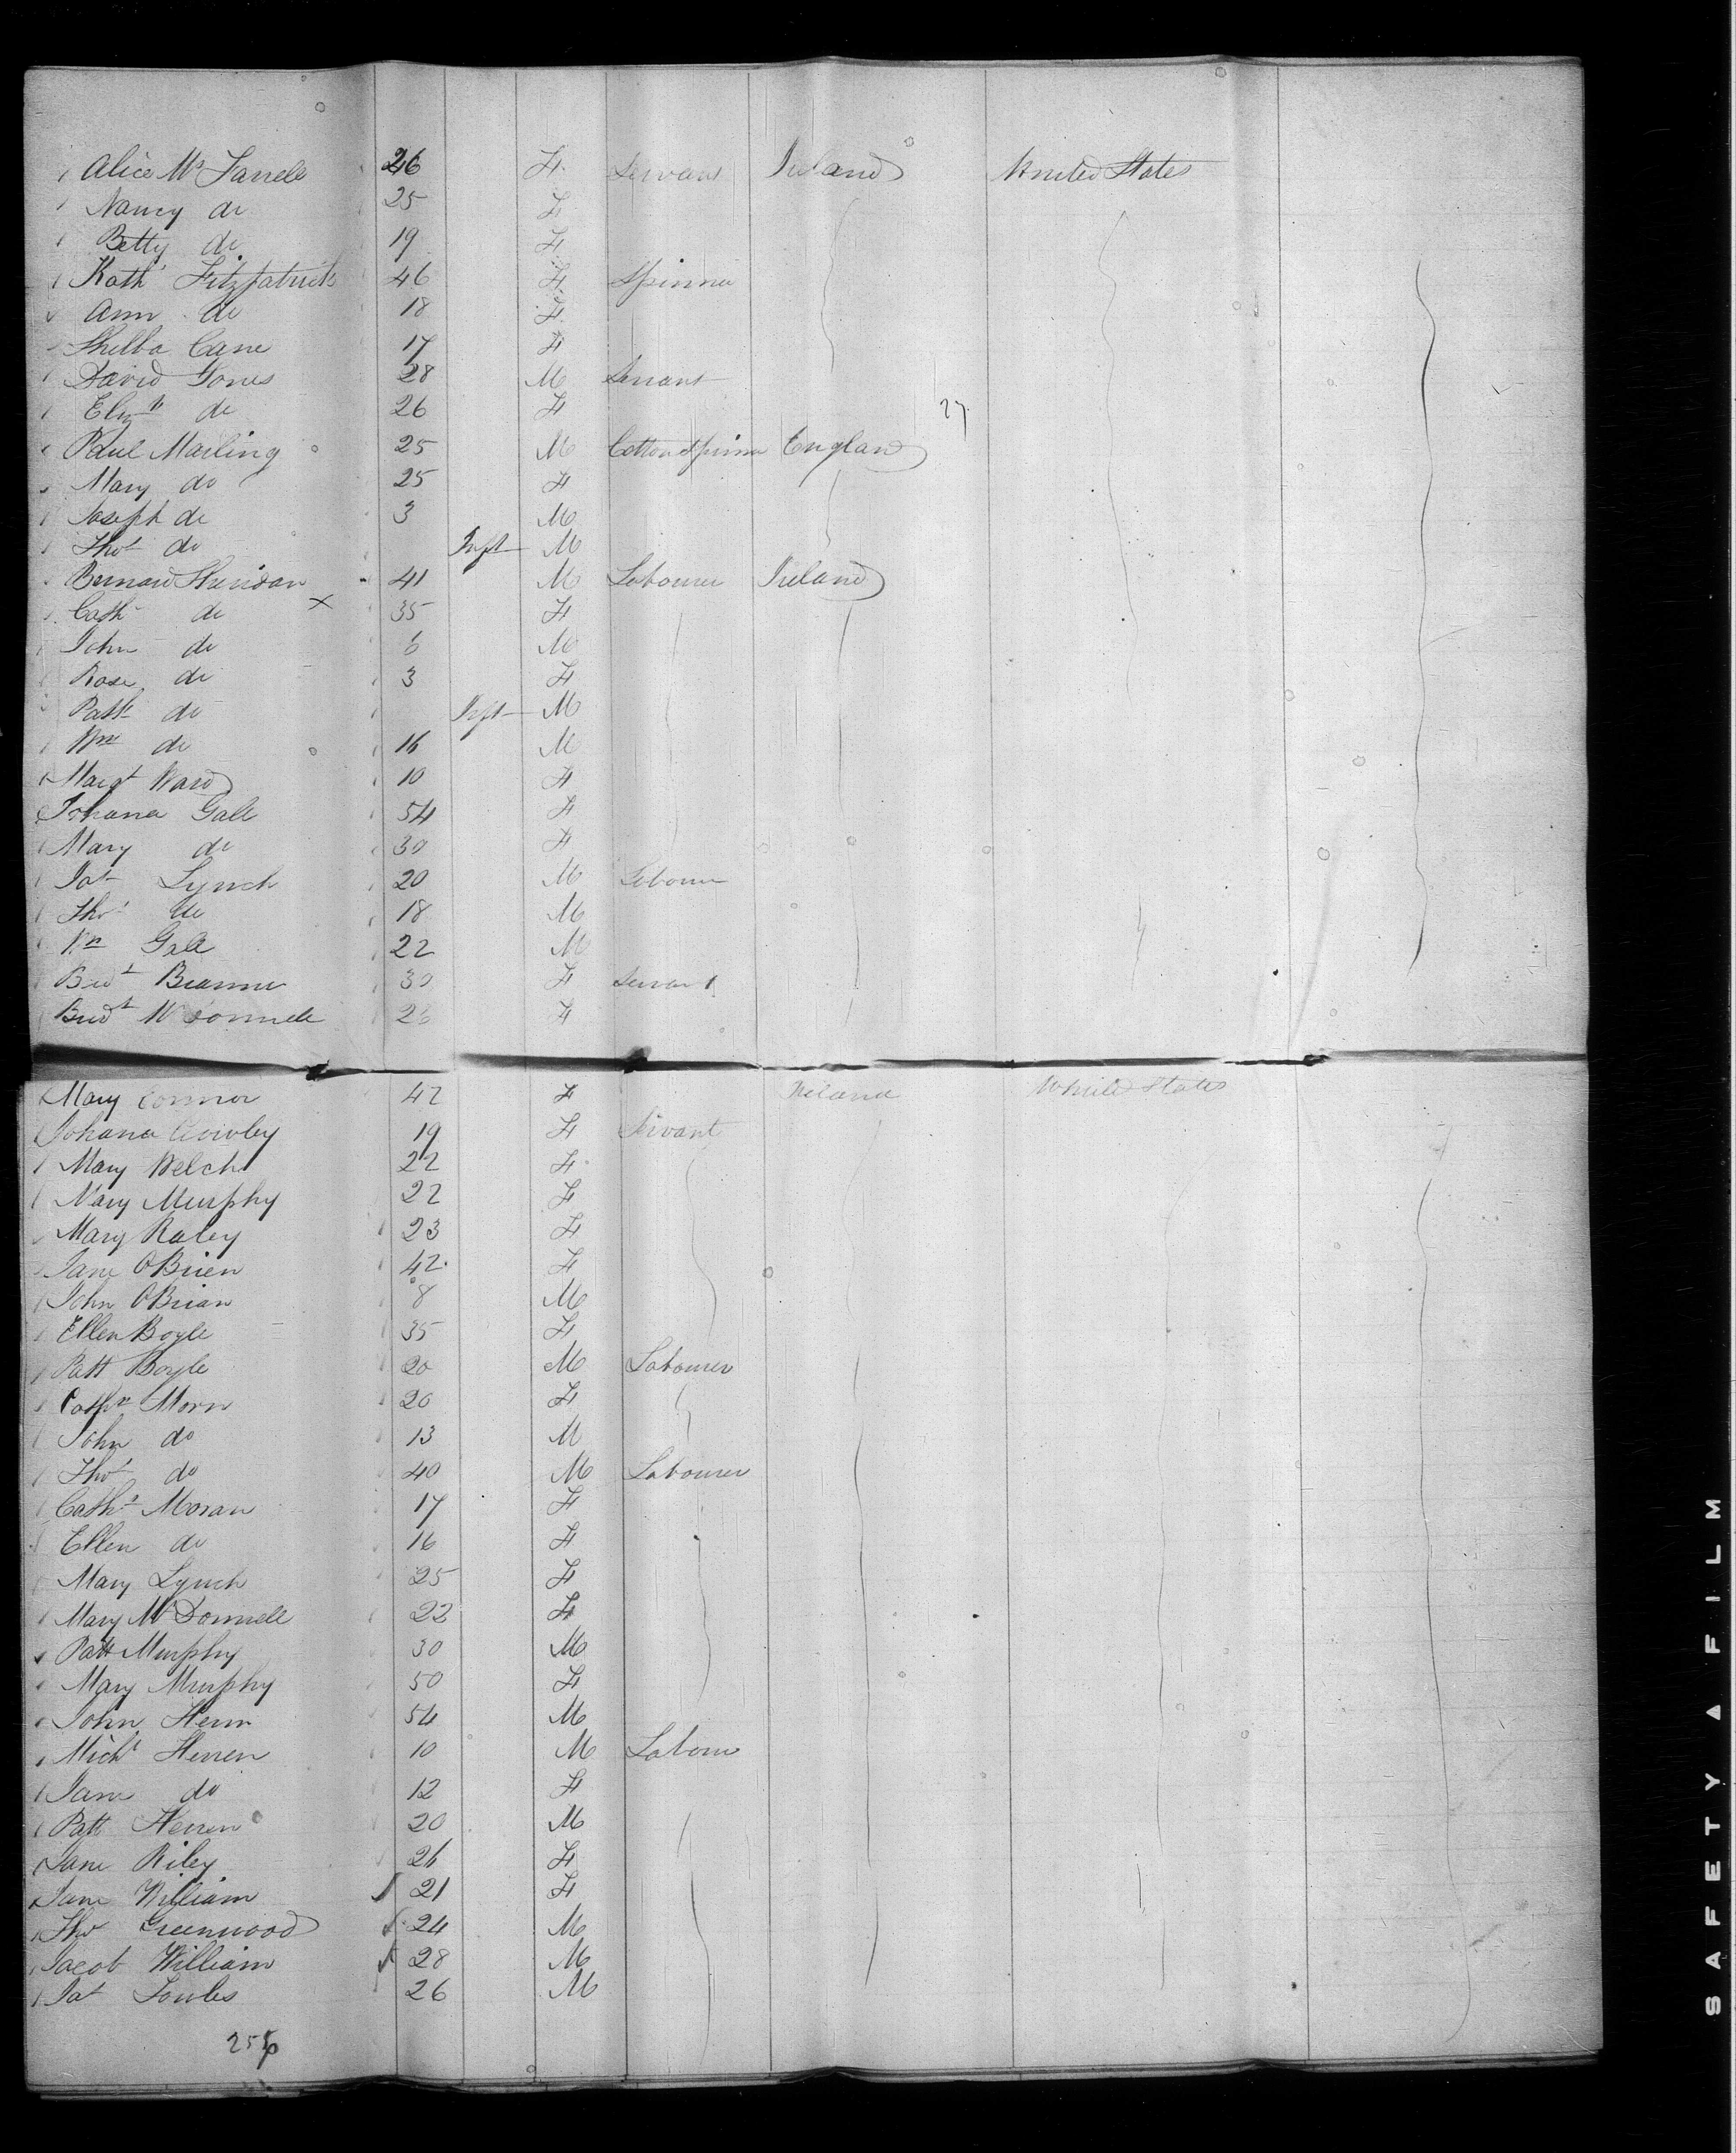 Alice Mc Farrele 26 F. Servant Ireland United States
Nancy do 25 F
Betty do 19 F
Kath Fitzpatrick 46 F Spinner
Ann do 18 F
Thelba Cane 17 F
David Jones 28 M Servant
Elizth do 26 F
27
Paul Marling 25 M Cotton Spinner England
Mary do 25 F
Joseph do 3 M
Thos do Inft M
Bernard Sheridan 41 M Labourer Ireland
Cath do x 35 F
John do 6 M
Rose do 3 F
Patk do Inft M
Wm do 16 M
Margt Ward 10 F
Johana Gall 54 F
Mary do 30 F
Jas Lynch 20 M Labourer
Thos do 18 M
Wm Gall 22 M
Bridt 30 F Servant
Bridt McDonnele 26 F
Mary Connor 42 F Ireland United States
Johana Cowley 19 F Servant
Mary Welch 22 F
Mary Murphy 22 F
Mary Raley 23 F
Jane OBrien 42 F
John OBrian 8 M
Ellen Boyle 35 F
Patt Boyle 20 M Labourer
Cathn Morn 20 F
John do 13 M
Thos do 40 M Labourer
Cath Moran 17 F
Ellen do 16 F
Mary Lynch 25 F
Mary McDonnele 22 F
Patt Murphy 30 M
Mary Murphy 50 F
John Herrn 54 M
Michl Herren 10 M Labour
Jane do 12 F
Patt Herren 20 M
Jane Riley 26 F
Jane William 21 F
Thos Greenwood 24 M
Jacob William 28 M
Jas Fowles 26 M
256
SAFETY ▲ FILM